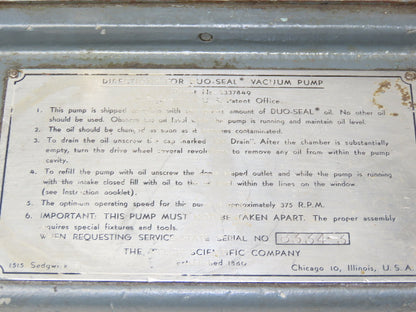 DIRE FOR DUO-SEAL® VACUUM PUMP
No. 2337849
Patent Office.
1. This pump is shipped with amount of DUO-SEAL® oil. No other oil
should be used. Obs oil level the pump is running and maintain oil level.
2. The oil should be changed as soon as it contaminated.
3. To drain the oil unscrew cap marked Drain". After the chamber is substantially
empty, turn the drive wheel several revol to remove any oil from within the pump
cavity.
4. To refill the pump with oil unscrew the outlet and while the pump is running
with the intake closed fill with oil to the within the lines on the window.
(see instruction booklet).
5. The optimum operating speed for this pu approximately 375 R.P.M.
6. IMPORTANT: THIS PUMP MUST BE TAKEN APART. The proper assembly
requires special fixtures and tools.
WHEN REQUESTING SERVICE SERIAL NO
THE SCIENTIFIC COMPANY
1515 Sedgwick 1880 Chicago 10, Illinois, U. S. A.